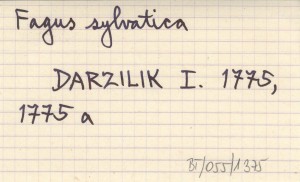 Fagus sylvatica
DARZILIK I. 1775,
1775 a
BT/055/1375